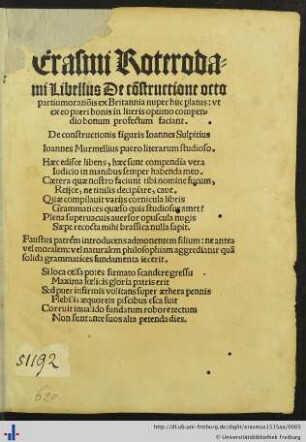 Erasmi Roteroda-
mi Libellus De cōstructione octo
partium orationis ex Britannia nuper huc platus: vt
ex eo pueri bonis in litteris optimo compen-
dio bonum profectum faciant.
De constructionis figuris Ioannes Sulpitius
Ioannes Murmellius puero literarum studioso.
Hæc edisce libens, hæc sunt compendia vera
Iudicio in manibus semper habenda meo.
Cætera quæ nostro faciunt tibi nomine fucum,
Reijce, ne titulis decipiare, caue.
Quæ compilauit varijs cornicula libris
Grammatices quæso quis studiosus amet?
Plena superuacuis auersor opuscula nugis
Sæpe recocta mihi brassica nulla sapit.
Faustus patrem introducens admonentem filium: ne antea
vel moralem: vel naturalem philosophiam aggrediatur quā
solida grammatices fundamenta iecerit.
Si loca celsa potes firmato scandere gressu
Maxima fœlicis gloria patris erit
Sed puer infirmis volitans super æthera pennis
Flebilis æquoreis piscibus esca fuit
Corruit inualido fundatum robore tectum
Non sunt ante suos alta petenda dies.
S1192
http://dl.ub.uni-freiburg.de/diglit/erasmus1515aa/0005
© Universitätsbibliothek Freiburg